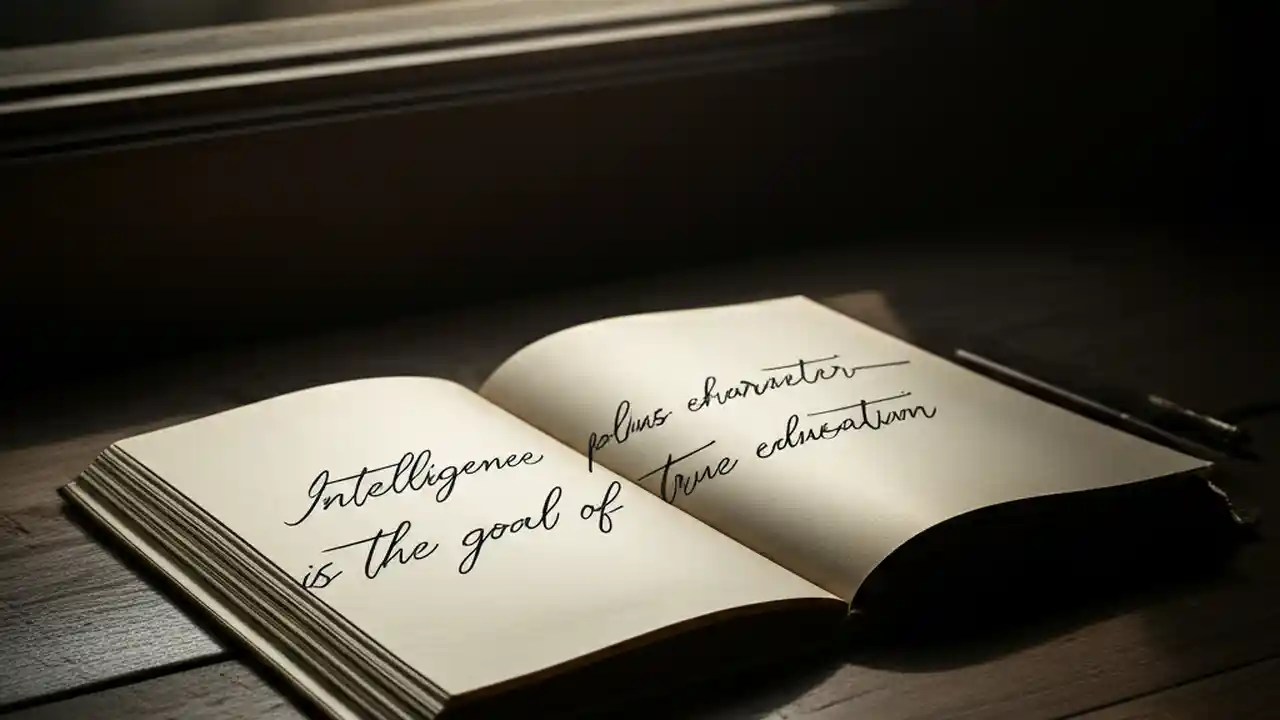 Intelligence plus character
is the goal of true education